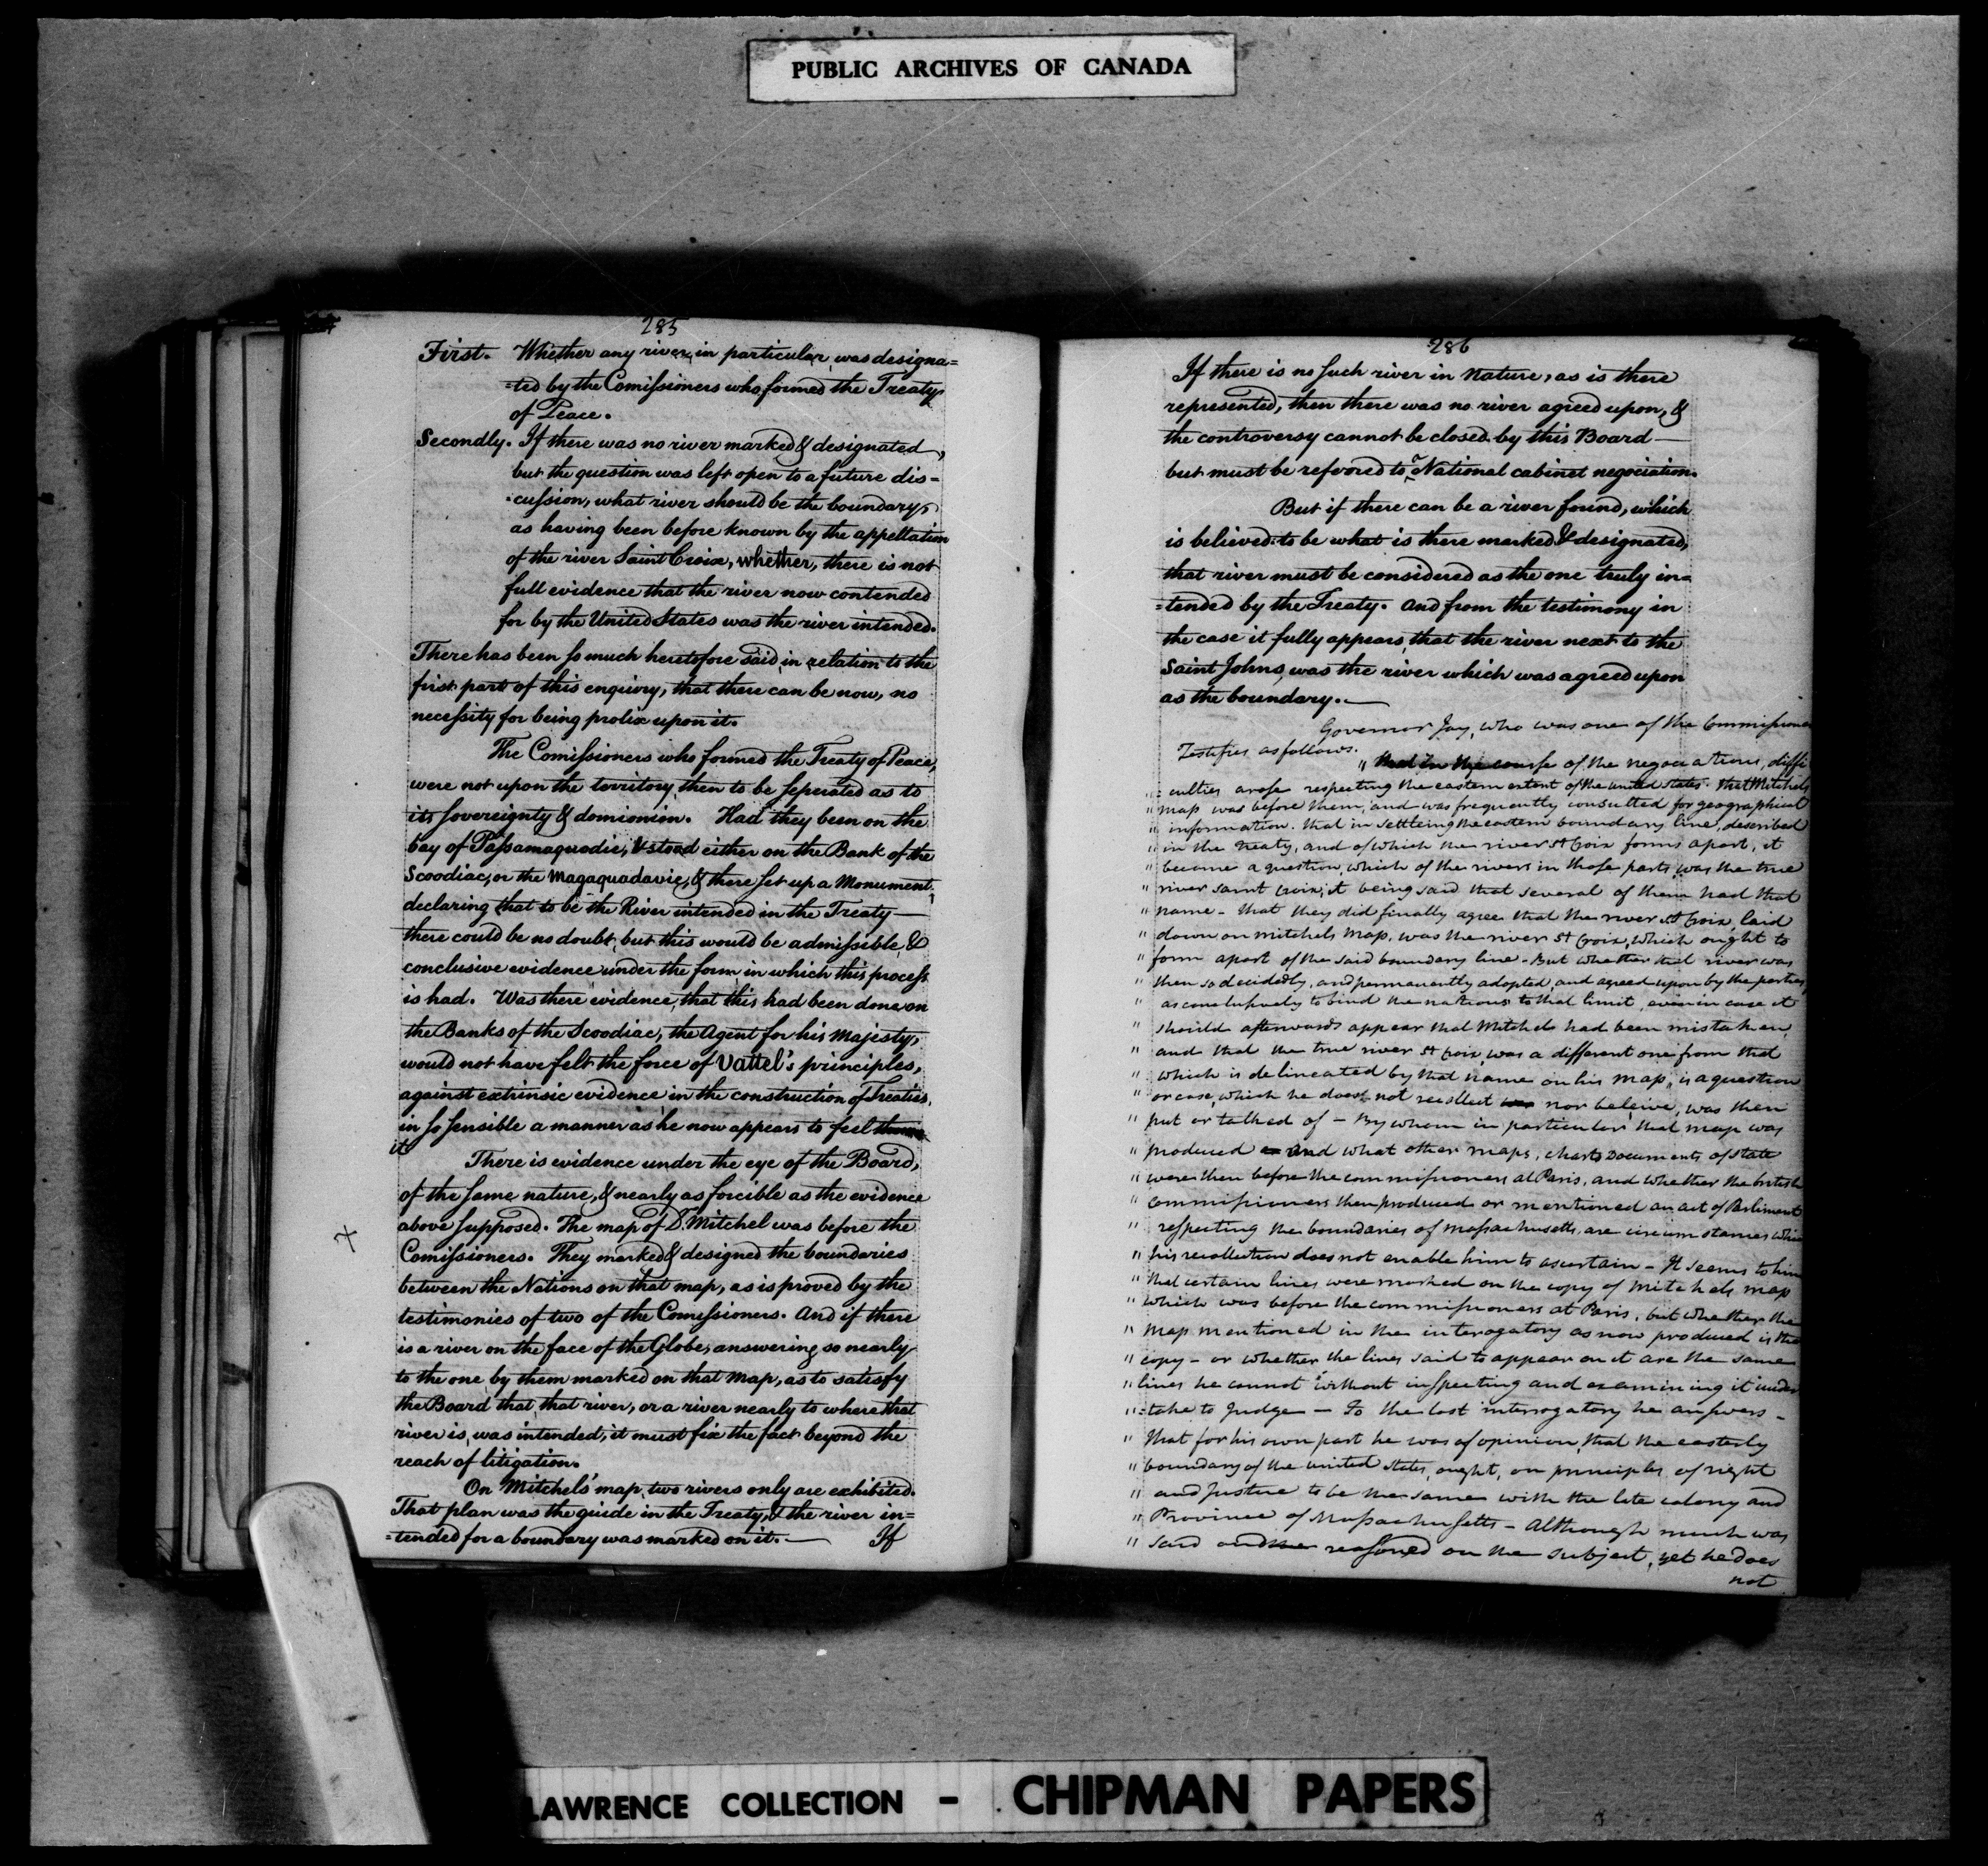 PUBLIC ARCHIVES OF CANADA
285
First. Whether any river in particular, was designa=
=ted by the Comissioners who formed the Treaty
of Peace.
Secondly. If there was no river marked & designated,
but the question was left open to a future dis=
=cussion, what river should be the boundary,
as having been before known by the appellation
of the river Saint Croix, whether, there is not
full evidence that the river now contended
for by the United States was the river intended.
There has been so much heretofore said in relation to the
first part of this enquiry, that there can be now, no
necessity for being prolix upon it.
The Comissioners who formed the Treaty of Peace,
were not upon the territory then to be seperated as to
its sovereignty & domionion. Had they been on the
bay of Passamaquodie, & stood either on the Bank of the
Scoodiac, or the Magaquadavic, & there set up a Monument
declaring that to be the River intended in the Treaty—
there could be no doubt, but this would be admissible &
conclusive evidence under the form in which this process
is had. Was there evidence, that this had been done on
the Banks of the Scoodiac, the Agent for his Majesty,
would not have felt the force of Vattel's principles,
against extrinsic evidence in the construction of Treaties,
in so sensible a manner as he now appears to feel
it
There is evidence under the eye of the Board,
of the same nature, & nearly as forcible as the evidence
above supposed. The map of D. Mitchel was before the
X
Comissioners. They marked & designed the boundaries
between the Nations on that map, as is proved by the
testimonies of two of the Comissioners. And if there
is a river on the face of the Globe, answering so nearly
to the one by them marked on that Map, as to satisfy
the Board that that river, or a river nearly to where that
river is, was intended, it must fix the fact beyond the
reach of litigation.
On Mitchel's map two rivers only are exhibited.
That plan was the guide in the Treaty, & the river in=
=tended for a boundary was marked on it.— If
286
If there is no such river in Nature, as is there
represented, then there was no river agreed upon, &
the controversy cannot be closed by this Board—
but must be refered to a National cabinet negociation.
But if there can be a river found, which
is believed to be what is there marked & designated,
that river must be considered as the one truly in=
=tended by the Treaty. And from the testimony in
the case it fully appears, that the river next to the
Saint Johns, was the river which was agreed upon
as the boundary.—
Governor Jay, who was one of the Commissioners
Testifies as follows.
" that in the course of the negociations, diffi
" culties arose respecting the eastern extent of the united states. that Mitchels
" map was before them, and was frequently consulted for geographical
" information. that in settleing the eastern boundary line, described
" in the treaty, and of which the river St Croix forms apart, it
" became a question, which of the rivers in those parts was the true
" river saint Croix, it being said that several of them had that
" name - that they did finally agree that the river St Croix, laid
" down on mitchels Map, was the river St Croix, which ought to
" form apart of the said boundary line - But whether that river was
" then so decidedly, and permanently adopted, and agreed upon by the parties,
" as conclusively to bind the nations to that limit, even in case it
" should afterwards appear that Mitchels had been mistaken,
" and that the true river St Croix, was a different one from that
" which is delineated by that name on his map, is a question
" or case, which he does not recollect nor beleive, was then
" put or talked of - By whom in particular that map was
" produced and what other maps, charts Documents of state
" were then before the commissioners at Paris, and whether the british
" Commissioners then produced or mentioned an act of Parliment
" respecting the boundaries of massachusetts, are circumstances which
" his recollection does not enable him to ascertain - It seems to him
" that certain lines were marked on the copy of Mitchels map
" which was before the commissioners at Paris, but whether the
" map mentioned in the interogatory as now produced is the
" copy - or whether the lines said to appear on it are the same
" lines he cannot without inspecting and examining it under
" =take to Judge — To the last interrogatory he answers -
" that for his own part he was of opinion, that the easterly
" boundary of the united states, ought, on principles of right
" and Justice to be the same with the late colony and
" Province of Massachusetts - Although much was
" said and reasoned on the subject, yet he does
not
LAWRENCE COLLECTION - CHIPMAN PAPERS